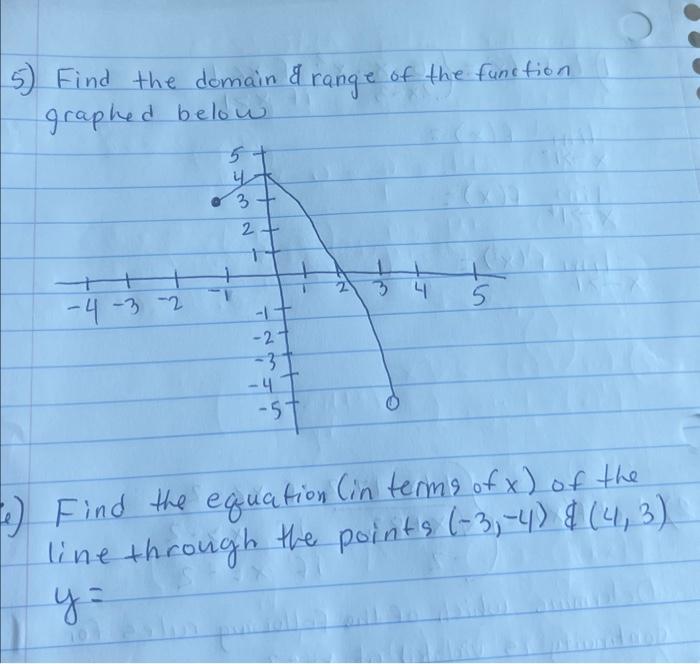 5) Find the domain & range of the function
graphed below
5
4
3
2
1
-4 -3 -2 -1 1 2 3 4 5
-1
-2
-3
-4
-5
Find the equation (in terms of x) of the
line through the points (-3,-4) & (4,3)
y=